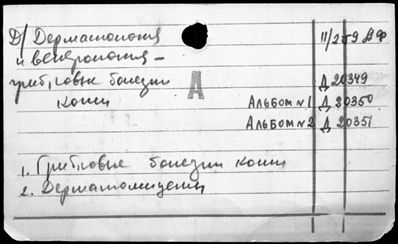 Д/ Дерматология 11/259 ДФ
и венерология –
грибковые болезни Д 20349
кожи А Альбом №1 Д 20350
Альбом №2 Д 20351
1. Грибковые болезни кожи
2. Дерматомицеты